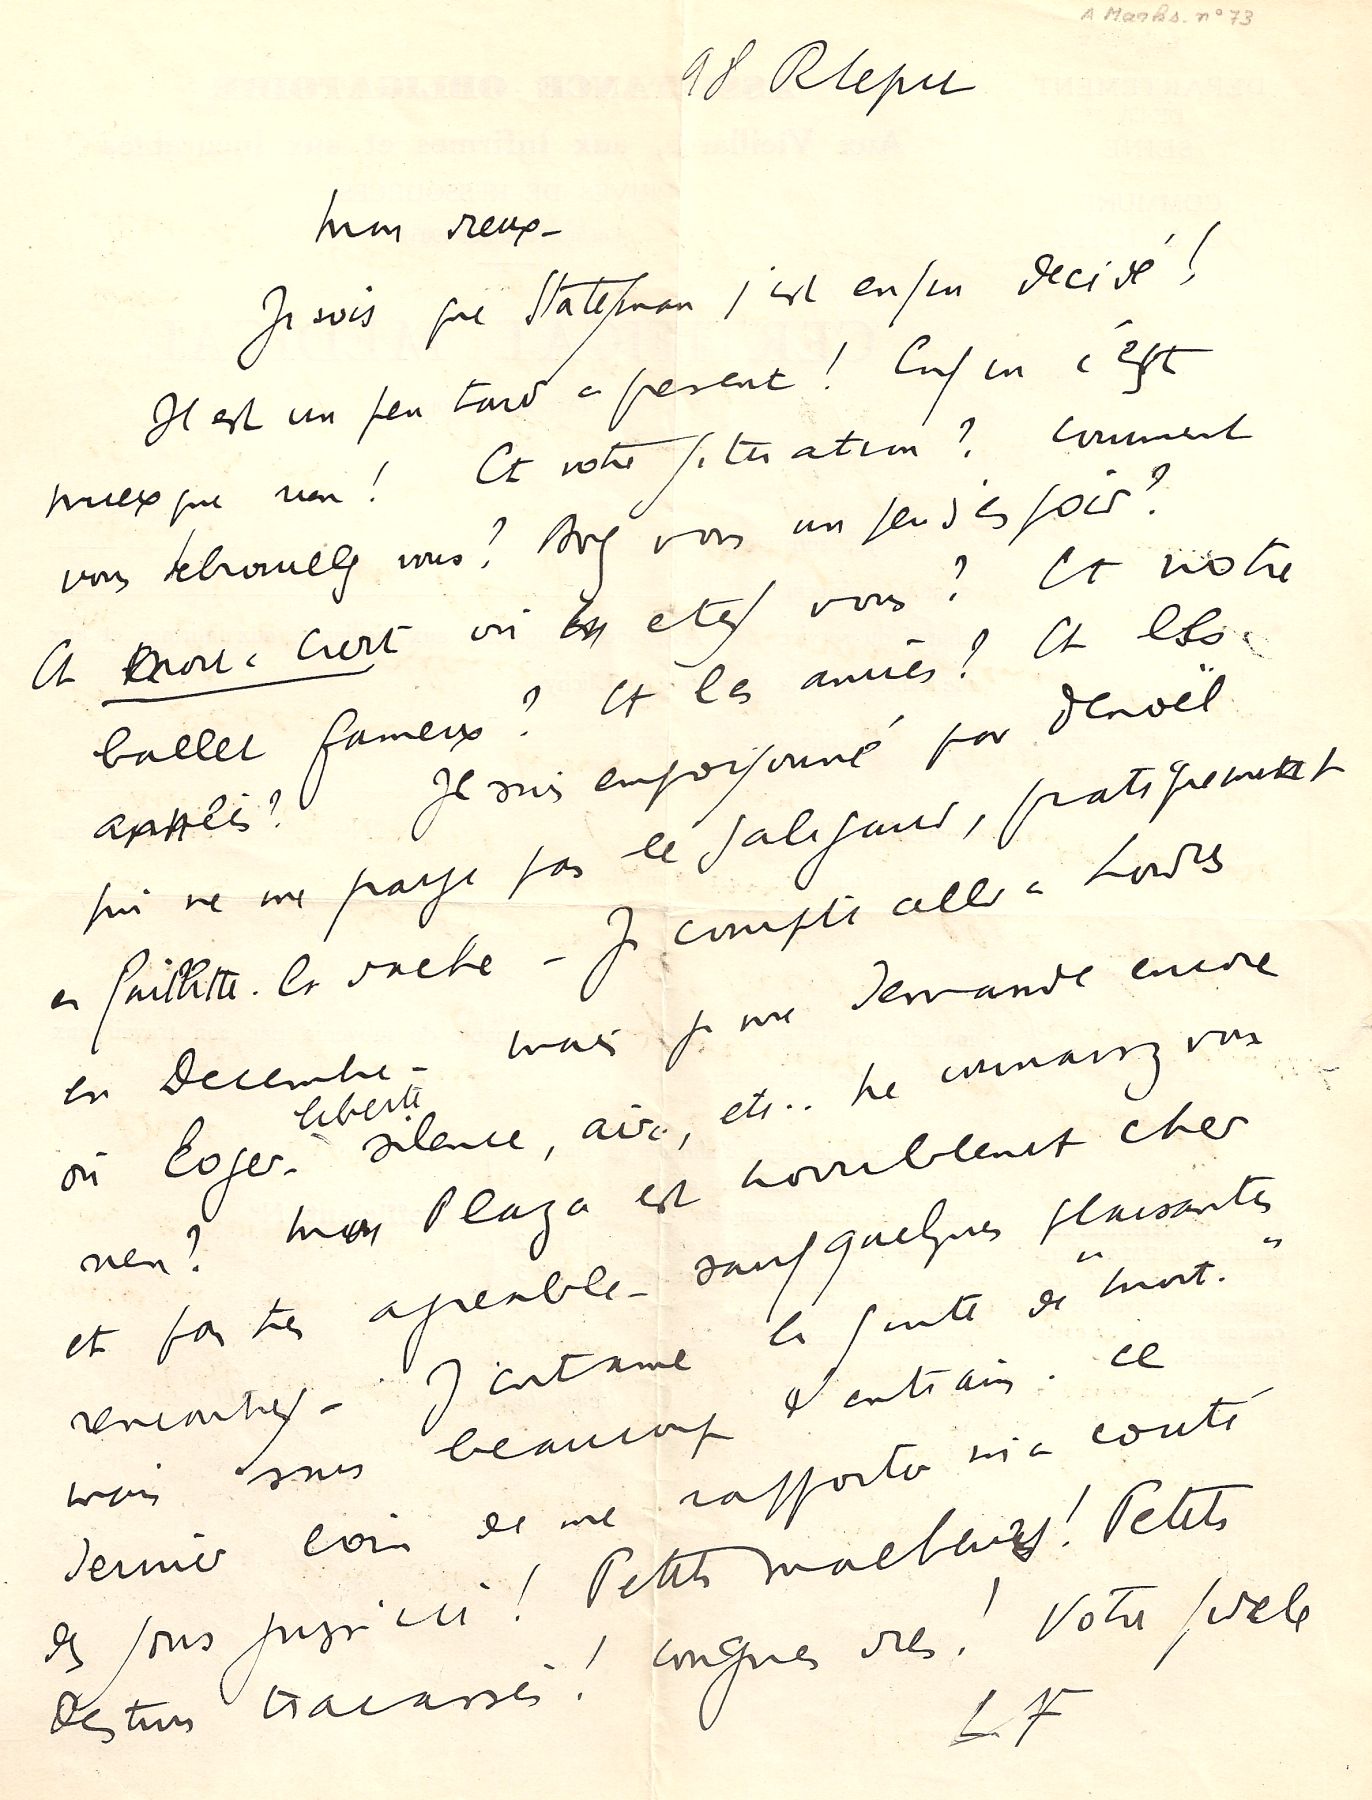 A Marks. n° 73
98 R Lepic
Mon vieux -
Je vois que Statesman s'est enfin décidé !
Il est un peu tard a present ! Enfin c'est
mieux que rien ! Et votre situation ? Comment
vous debrouillez vous ? Avez vous un peu d'espoir ?
Et Mort à Crert où en etes vous ? Et notre
ballet fameux ? Et les amies ? Et les
Je suis empoisonné par Denoël
qui ne me paye pas le saligaud, pratiquement
en faillite. la vache - Je compte aller a Londres
en Decembre - mais je me demande encore
où loger - liberté silence, air, etc.. Ne connaissez vous
rien ? Mon Plaza est horriblement cher
et pas tres agreable - sauf quelques plaisantes
rencontres - J'entame la suite de "Mort."
mais sans beaucoup d'entrain. Ce
dernier loin de me rapporter m'a couté
des sous jusqu'ici ! Petits malheurs ! Petits
destins tracassés ! Longues vies ! Votre fidele
LF